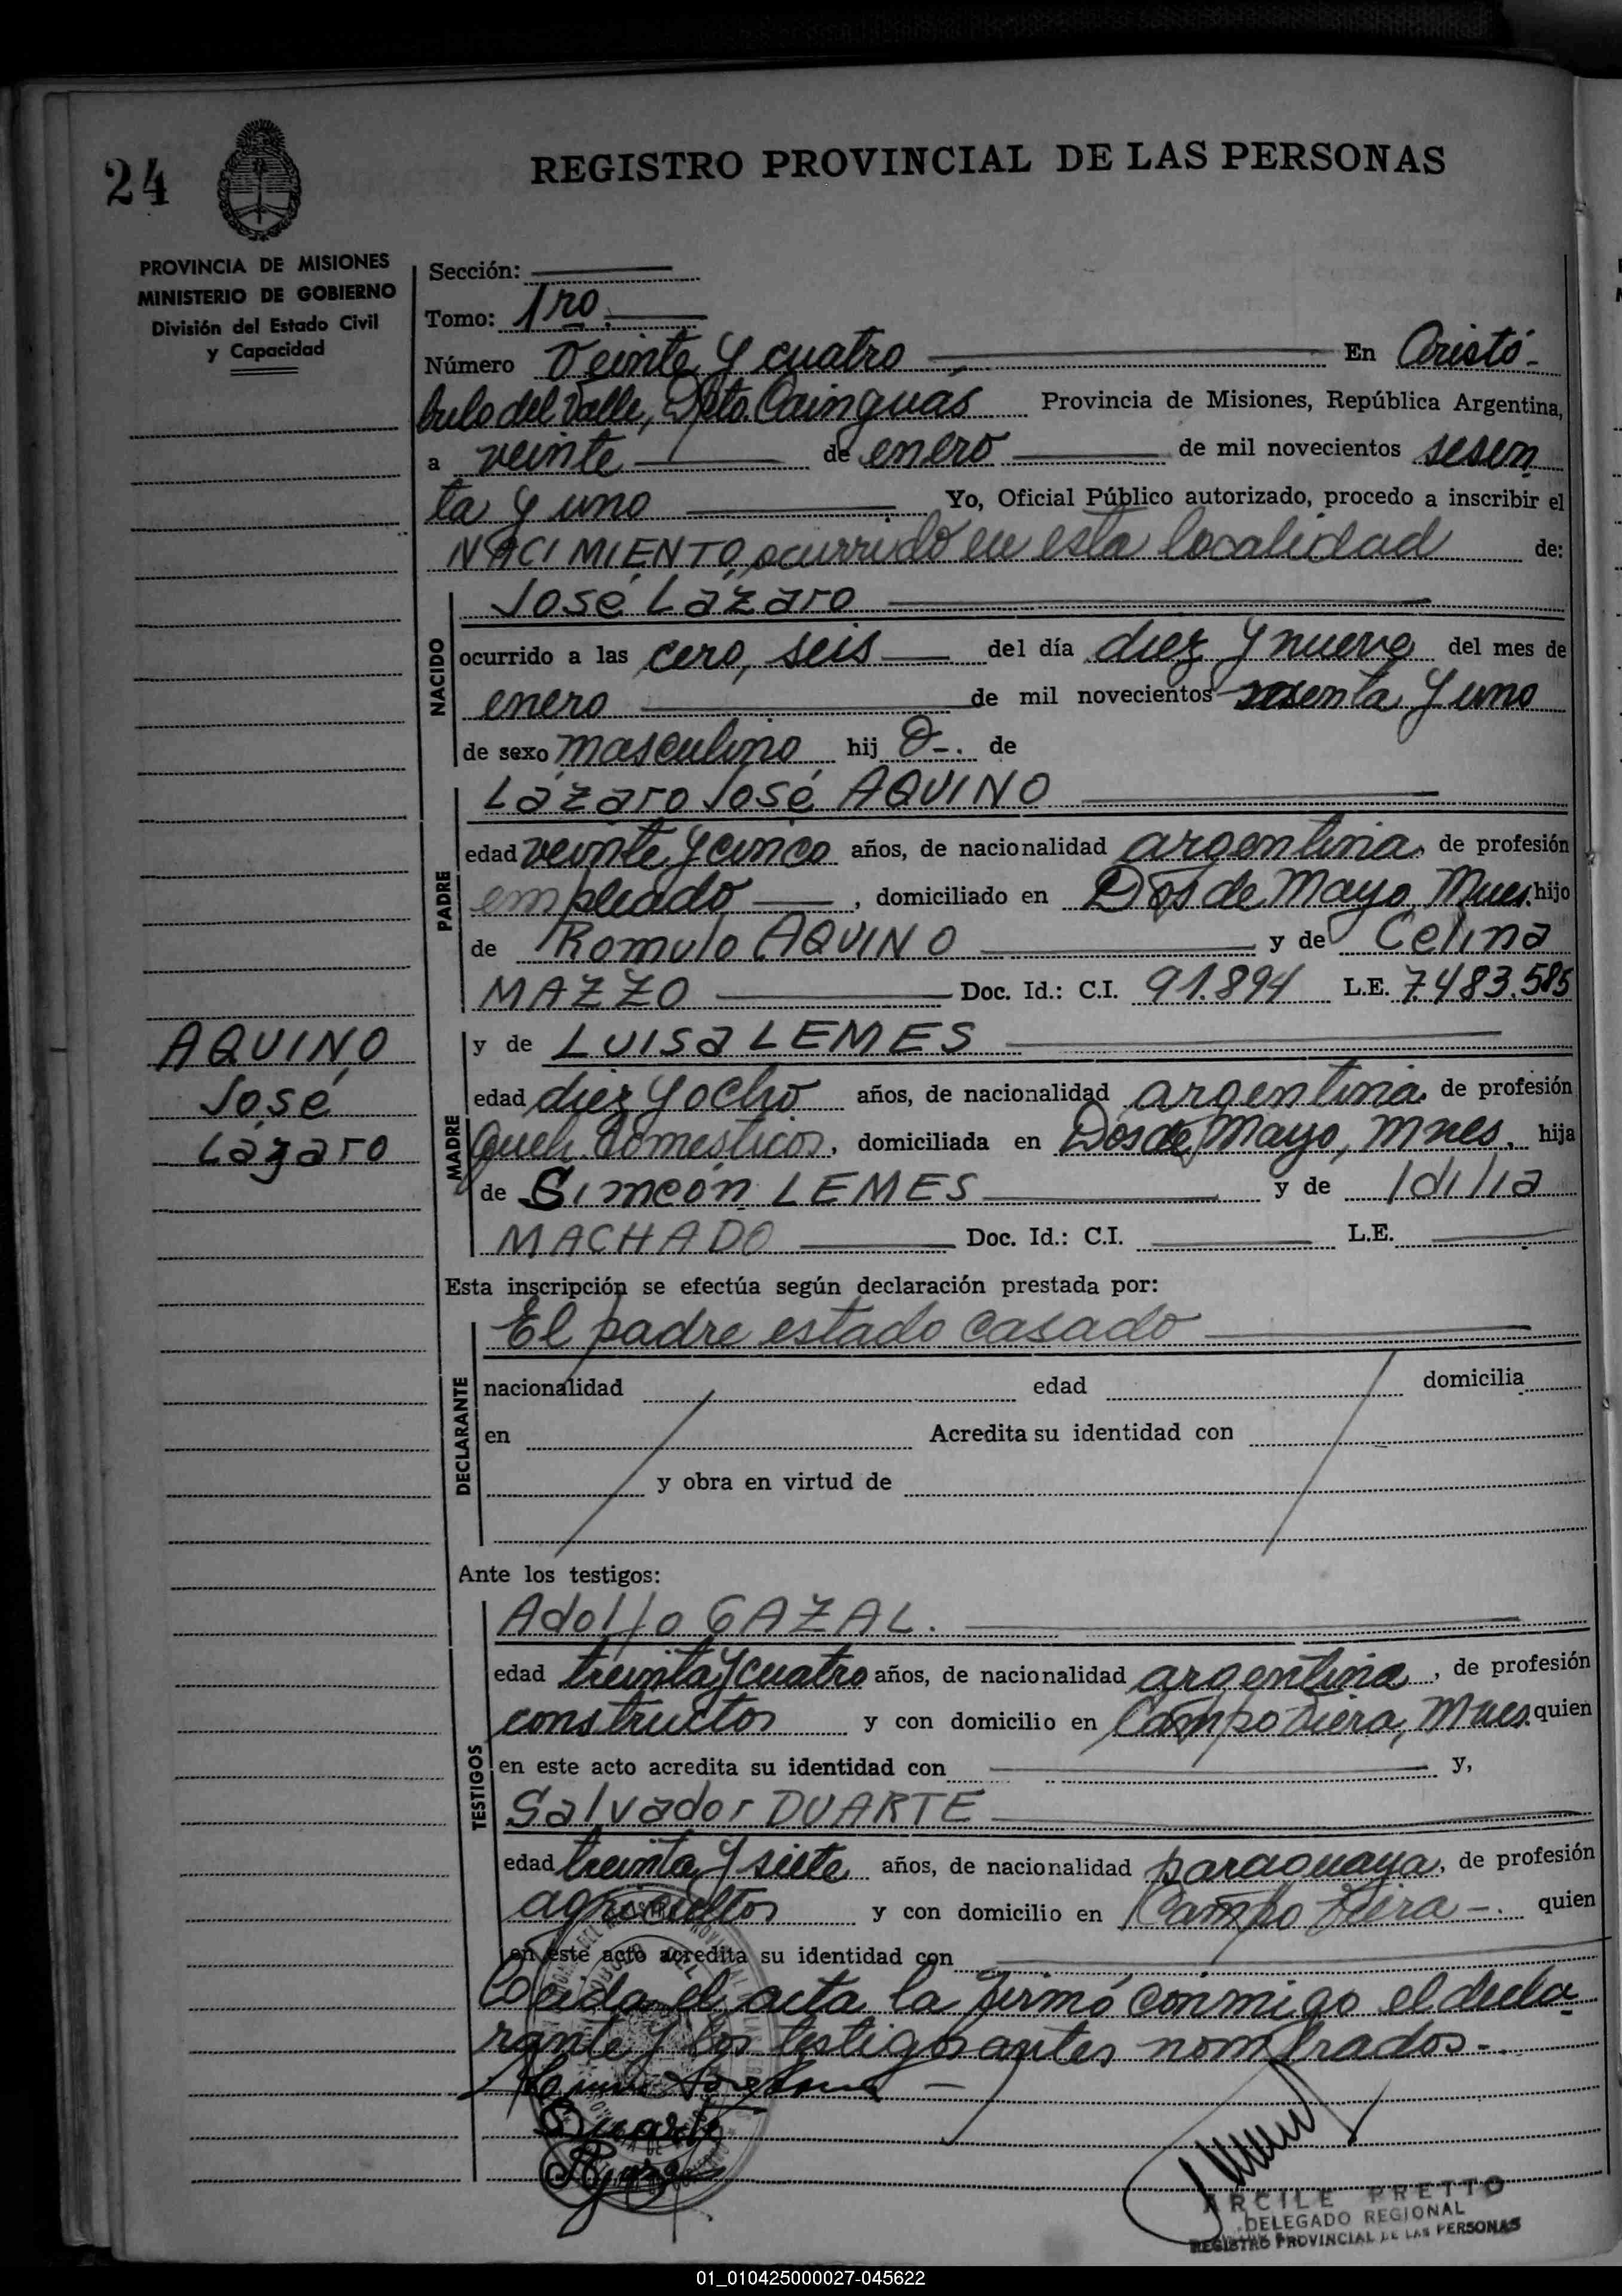 24
REGISTRO PROVINCIAL DE LAS PERSONAS
PROVINCIA DE MISIONES
MINISTERIO DE GOBIERNO
División del Estado Civil
y Capacidad
Sección:
Tomo: 1ro.
Número Veinte y cuatro En Aristó-
bulo del Valle, Dpto. Cainguás Provincia de Misiones, República Argentina,
a veinte de enero de mil novecientos sesen
ta y uno Yo, Oficial Público autorizado, procedo a inscribir el
NACIMIENTO, ocurrido en esta localidad de:
José Lázaro
NACIDO
ocurrido a las cero, seis del día diez y nueve del mes de
enero de mil novecientos sesenta y uno
de sexo masculino hij o-. de
Lázaro José AQUINO
PADRE
edad veinte y cinco años, de nacionalidad argentina, de profesión
empleado, domiciliado en Dos de Mayo, Mnes. hijo
de Romulo AQUINO y de Celina
MAZZO Doc. Id.: C.I. 91.894 L.E. 7.483.585
AQUINO
José
Lázaro
y de Luisa LEMES
MADRE
edad diez y ocho años, de nacionalidad argentina, de profesión
queh. domesticos, domiciliada en Dos de Mayo, Mnes, hija
de Simeón LEMES y de Idilia
MACHADO Doc. Id.: C.I. L.E.
Esta inscripción se efectúa según declaración prestada por:
El padre estado casado
DECLARANTE
nacionalidad edad domicilia
en Acredita su identidad con
y obra en virtud de
Ante los testigos:
Adolfo GAZAL.
TESTIGOS
edad treinta y cuatro años, de nacionalidad argentina, de profesión
constructor y con domicilio en Campo Viera, Mnes. quien
en este acto acredita su identidad con y,
Salvador DUARTE
edad treinta y siete años, de nacionalidad paraguaya, de profesión
agricultor y con domicilio en Campo Viera-. quien
en este acto acredita su identidad con
el acta la firmó conmigo el decla-
rante y los testigos antes nombrados-.
Duarte
ARCILE PRETTO
DELEGADO REGIONAL
REGISTRO PROVINCIAL DE LAS PERSONAS
01_010425000027-045622